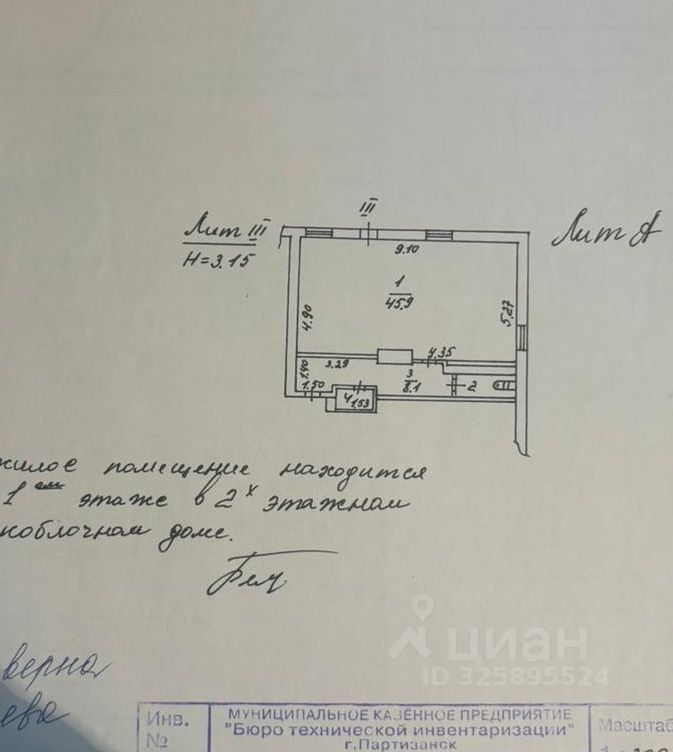 III
Лит III
H=3.15
Лит А
9.10
1
45,9
4.90
5.27
3.29
4.35
1.40
1.50
3
8.1
2
4
1,53
жилое помещение находится
1 ом этаже в 2 х этажном
коблочном доме.
верна
ева
циан
ID 325895524
Инв.
№
МУНИЦИПАЛЬНОЕ КАЗЁННОЕ ПРЕДПРИЯТИЕ
"Бюро технической инвентаризации"
г.Партизанск
Масштаб